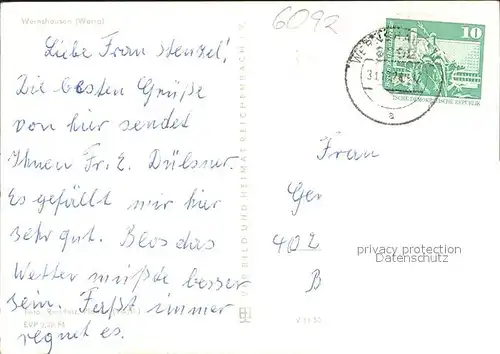 Wernshausen (Werra)
6092
Liebe Frau Stenzel!
Die besten Grüße
von hier sendet
Ihnen Fr. E. Dülsner.
Es gefällt mir hier
sehr gut. Blos das
Wetter müßte besser
sein. Fast immer
regnet es.
VEB BILD UND HEIMAT REICHENBACH I. V.
10
DEUTSCHE DEMOKRATISCHE REPUBLIK
Frau
Ger
402
B
privacy protection
Datenschutz